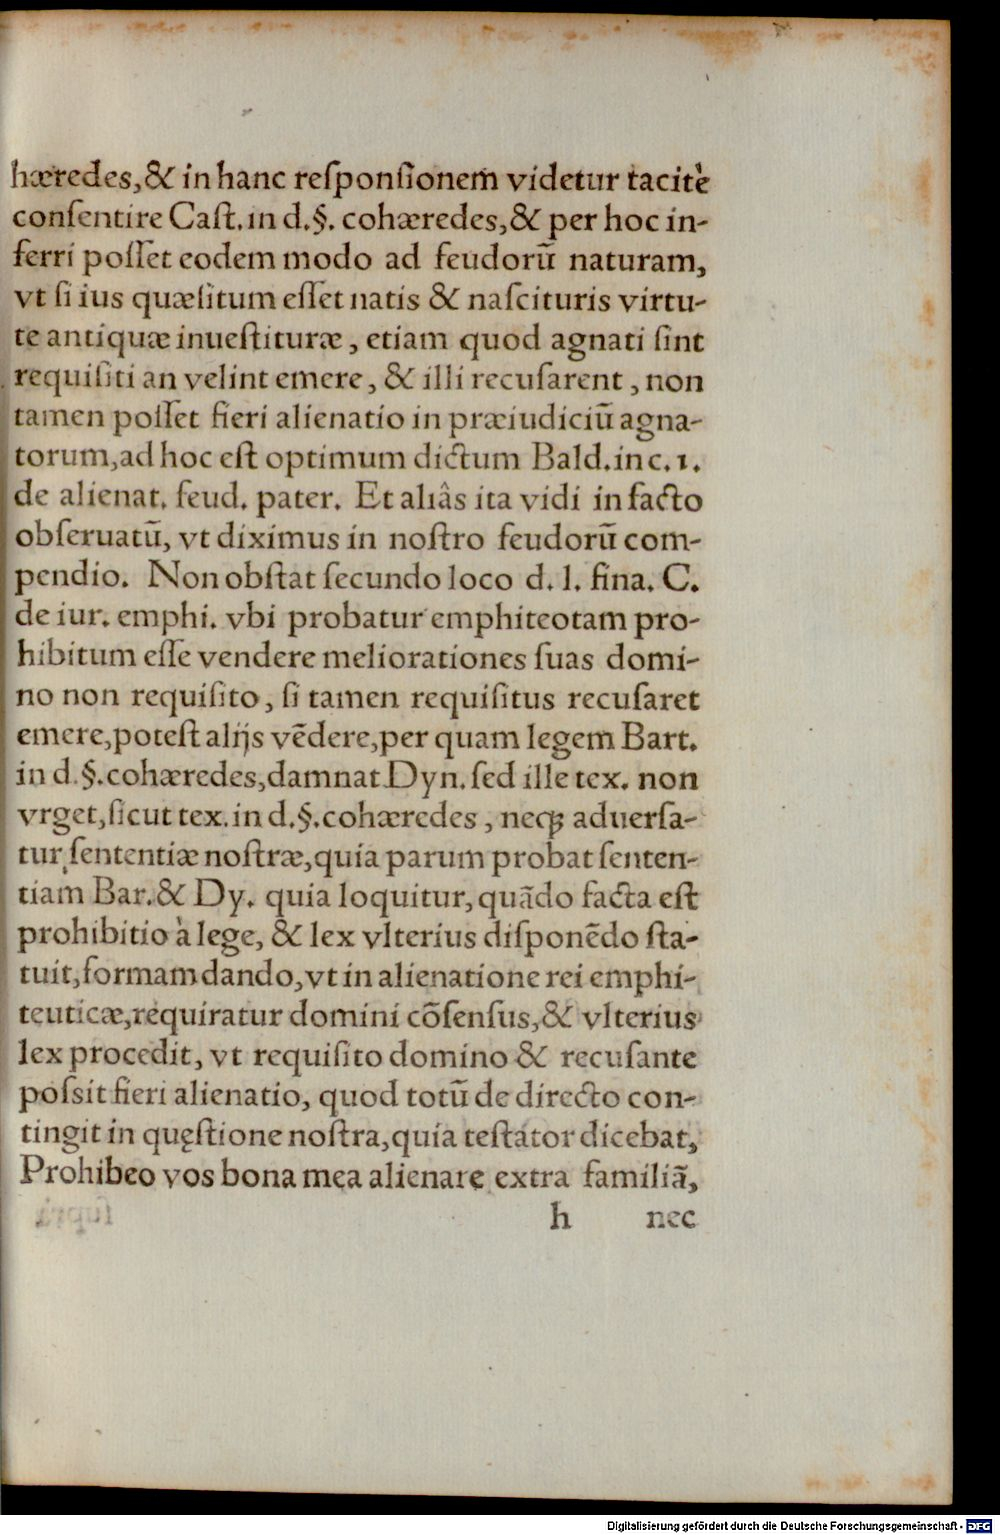 hæredes,& in hanc reſponſionem videtur tacitè
conſentire Caſt. in d.§. cohæredes,& per hoc in-
ferri poſſet eodem modo ad feudorū naturam,
vt ſi ius quæſitum eſſet natis & naſcituris virtu-
te antiquæ inueſtituræ, etiam quod agnati ſint
requiſiti an velint emere, & illi recuſarent, non
tamen poſſet fieri alienatio in præiudiciū agna-
torum,ad hoc eſt optimum dictum Bald.in c. 1.
de alienat. feud. pater. Et aliâs ita vidi in facto
obſeruatū, vt diximus in noſtro feudorū com-
pendio. Non obſtat ſecundo loco d. l. fina. C.
de iur. emphi. vbi probatur emphiteotam pro-
hibitum eſſe vendere meliorationes ſuas domi-
no non requiſito, ſi tamen requiſitus recuſaret
emere,poteſt alijs vēdere,per quam legem Bart.
in d.§.cohæredes,damnat Dyn. ſed ille tex. non
vrget,ſicut tex. in d.§.cohæredes, neqꝫ aduerſa-
tur ſententiæ noſtræ,quia parum probat ſenten-
tiam Bar.& Dy. quia loquitur, quādo facta eſt
prohibitio à lege, & lex vlterius diſponēdo ſta-
tuit,formam dando,vt in alienatione rei emphi-
teuticæ,requiratur domini cōſenſus,& vlterius
lex procedit, vt requiſito domino & recuſante
poſsit fieri alienatio, quod totū de directo con-
tingit in quęſtione noſtra,quia teſtator dicebat,
Prohibeo vos bona mea alienare extra familiā,
h nec
Digitalisierung gefördert durch die Deutsche Forschungsgemeinschaft - DFG